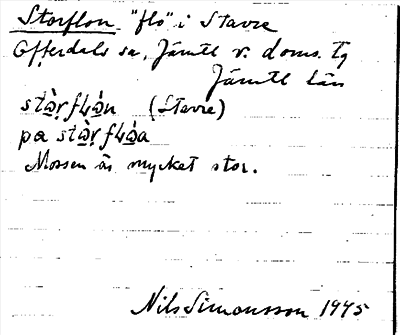 Storflon "flo" i Stavre
Offerdals sn, Jämtl v. doms. tg
Jämtl län
stò̱ṛfLó̱n (Stavre)
pa stò̱ṛfLó̱a
Mossen är mycket stor.
Nils Simonsson 1945